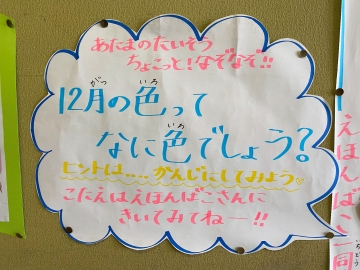 あたまのたいそう
ちょこっと!なぞなぞ!!
12月の色って
なに色でしょう?
ヒントは‥‥かんじにしてみよう
こたえはえほんばこさんに
きいてみてねー!!
えほんばこ一同